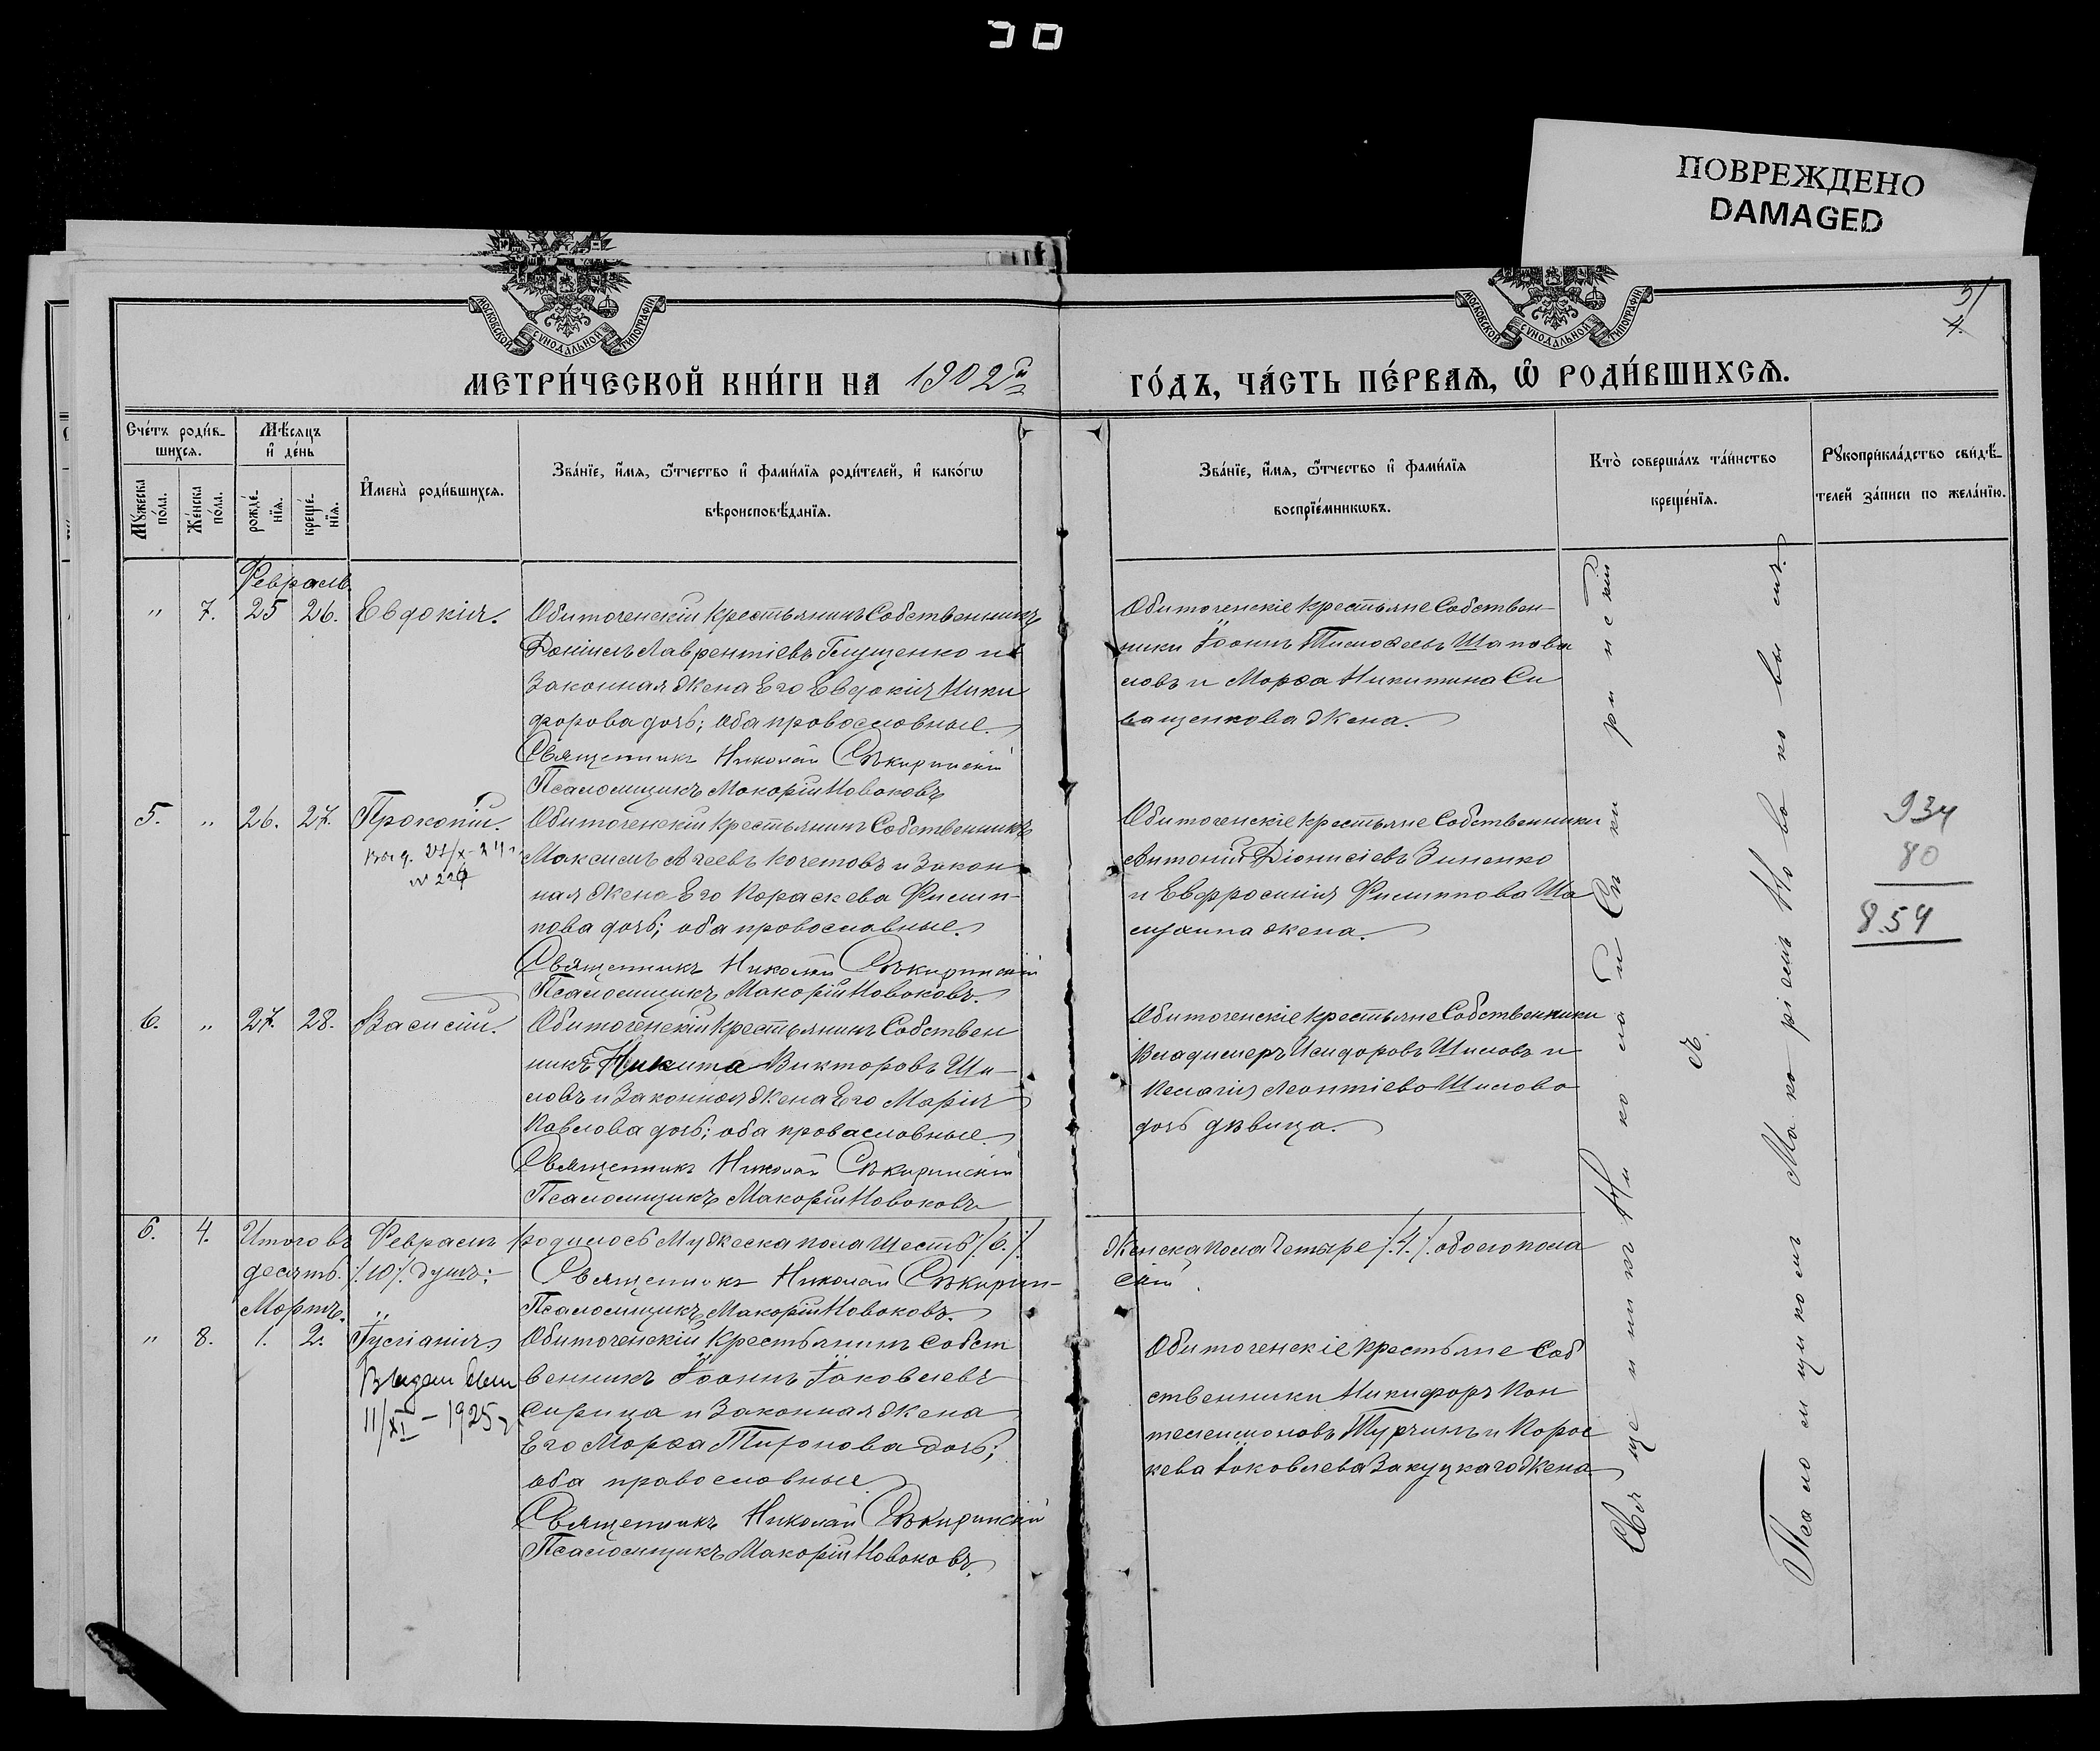 ПОВРЕЖДЕНО
DAMAGED
МОСКОВСКОЙ СѴНОДАЛЬНОЙ ТИПОГРАФІИ
МОСКОВСКОЙ СѴНОДАЛЬНОЙ ТИПОГРАФІИ
МЕТРИ́ЧЕСКОЙ КНИ́ГИ НА 1902й
ГО́ДЪ, ЧА́СТЬ ПЕ́РВАѦ, Ѽ РОДИ́ВШИХСѦ.
Сче́тъ роди́в-
шихсѧ.
Мꙋ́жеска по́ла.
Же́нска по́ла.
Мѣ́сѧцъ и҆ де́нь
рожде́-нїѧ.
креще́-нїѧ.
И҆мена̀ роди́вшихсѧ.
Зва́нїе, и҆́мѧ, ѻ҆́тчество и҆ фами́лїѧ роди́телей, и҆ како́гѡ
вѣроисповѣ́данїѧ.
Зва́нїе, и҆́мѧ, ѻ҆́тчество и҆ фами́лїѧ
воспрїе́мникѡвъ.
Кто̀ соверша́лъ та́инство
креще́нїѧ.
Рꙋкоприкла́дство свидѣ́-
телей за́писи по жела́нїю.
Февраль
" 7. 25 26. Евдокія.
Обиточенскій крестьянинъ Собственникъ
Даніилъ Лаврентіевъ Глущенко и
Законная жена Его Евдокія Ники
форова дочь; оба православные.
Священникъ Николай Сѣкиринскій
Псаломщикъ Макарій Новаковъ
Обиточенскіе крестьяне Собствен-
ники Іоаннъ Тимоѳеевъ Шапова
ловъ и Марѳа Никитина Си
ващенкова жена.
5. " 26. 27. Прокопій.
Выд. 21/X-24г.
Обиточенскій крестьянинъ Собственникъ
Максимъ Агеевъ Кочетовъ и Закон
ная жена Его Параскева Филип-
пова дочь; оба православные.
Священникъ Николай Сѣкиринскій
Псаломщикъ Макарій Новаковъ.
Обиточенскіе крестьяне Собственники
Антоній Діонисіевъ Зиненко
и Евфросинія Филиппова Ша
лухина жена.
934
80
854
6. " 27. 28. Василій.
Обиточенскій крестьянинъ Собствен
никъ Никита Викторовъ Ши-
ловъ и Законная жена Его Марія
Павлова дочь; оба православные.
Священникъ Николай Сѣкиринскій
Псаломщикъ Макарій Новаковъ
Обиточенскіе крестьяне Собственники
Владимеръ Исидоровъ Шиловъ и
Пелагія Леонтіева Шилова
дочь дѣвица.
6. 4. Итого въ Февралѣ родилось Мужеска пола Шесть /6./ Женска пола Четыре /.4./. обоего пола
десять /.10/. душъ: Священникъ Николай Сѣкирин-
скій
Псаломщикъ Макарій Новаковъ.
Мартъ.
" 8. 1. 2. Іуліанія
Выдан
11/XI - 1925г
Обиточенскій крестьянинъ собст
венникъ Іоаннъ Іаковлевъ
Сирица и Законная жена
Его Марѳа Тихонова дочь;
оба православные
Священникъ Николай Сѣкиринскій
Псаломщикъ Макарій Новаковъ.
Обиточенскіе крестьяне Соб
ственники Никифоръ Пан
телеимоновъ Турчинъ и Парас
кева Іаковлева Закуцкаго жена
Священникъ Николай Сѣкиринскій
съ
Псаломщикомъ Макаріемъ Новаковымъ